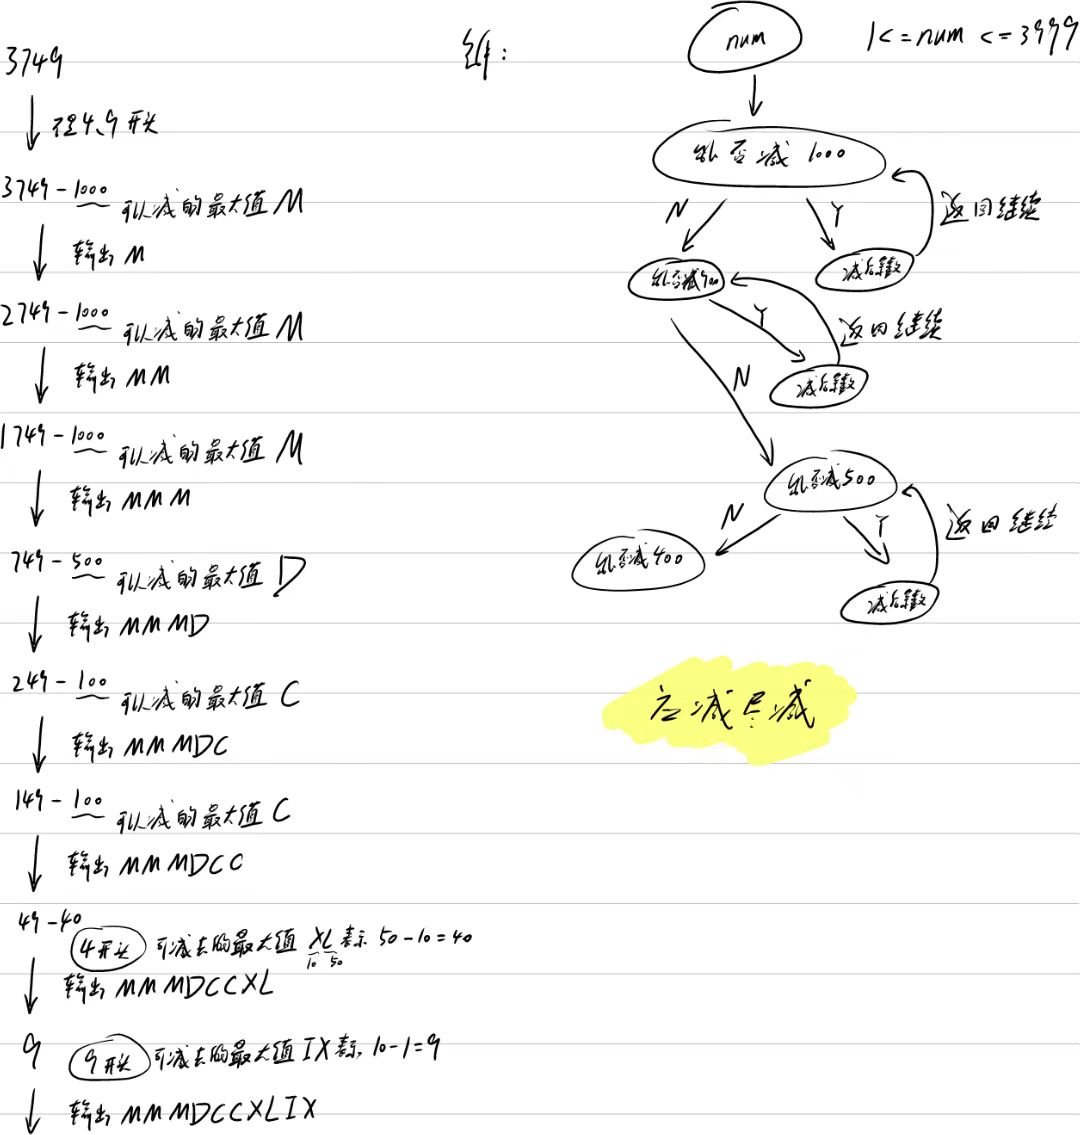 3749
不是4、9开头
3749-1000 可以减的最大值 M
输出 M
2749-1000 可以减的最大值 M
输出 MM
1749-1000 可以减的最大值 M
输出 MMM
749-500 可以减的最大值 D
输出 MMMD
249-100 可以减的最大值 C
输出 MMMDC
149-100 可以减的最大值 C
输出 MMMDCC
49-40
4开头 可减去的最大值 XL 表示 50-10=40
10 50
输出 MMMDCCXL
9 9开头 可减去的最大值 IX表示 10-1=9
输出 MMMDCCXLIX
:
num
1<=num <=3999
能否减 1000
N
Y
返回继续
能否减900
减后导数
Y
返回继续
N
减后导数
能否减500
N
Y
返回继续
能否减400
减后导数
应减尽减